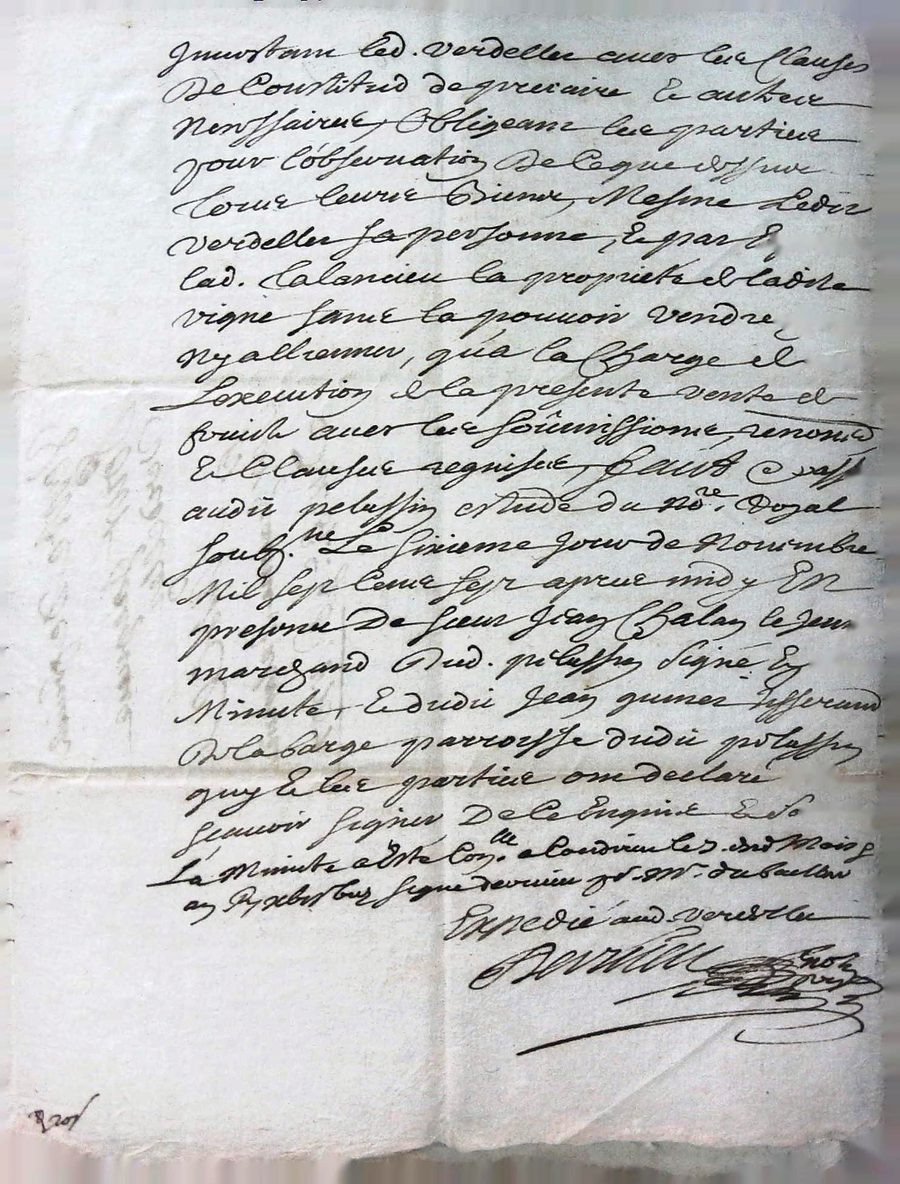 Investant led. verdellet avec les Clauses
De Constitud de precaire Et autres
Necessaires, Obligeant les parties
pour l'observation De Ceque dessus
tous leurs Biens, Mesme Ledit
verdellet sa personne, Et par
lad. la proprieté de ladite
vigne sans la pouvoir vendre,
Ny allienner, qu'a la Charge de
L'execution de la presente vente de
fruits avec les soûmissions, renon͠
Et Clauses requises, faict
audit pelussin estude du Nore. Royal
soubs.ne Le sixieme Jour de Novembre
Mil sept Cens apres midy En
presence De sieur Jean Chalan le Jeune
marchand dud. pelussin signé En
Minute, Et dudit Jean tisserand
De la barge parroisse dudit pelussin
quy Et les parties ont declaré
scavoir signer De Ce Enquis Et
La Minute a Esté Conlle a Condrieu le 7. dud Mois
signé
Expedié aud. verdellet